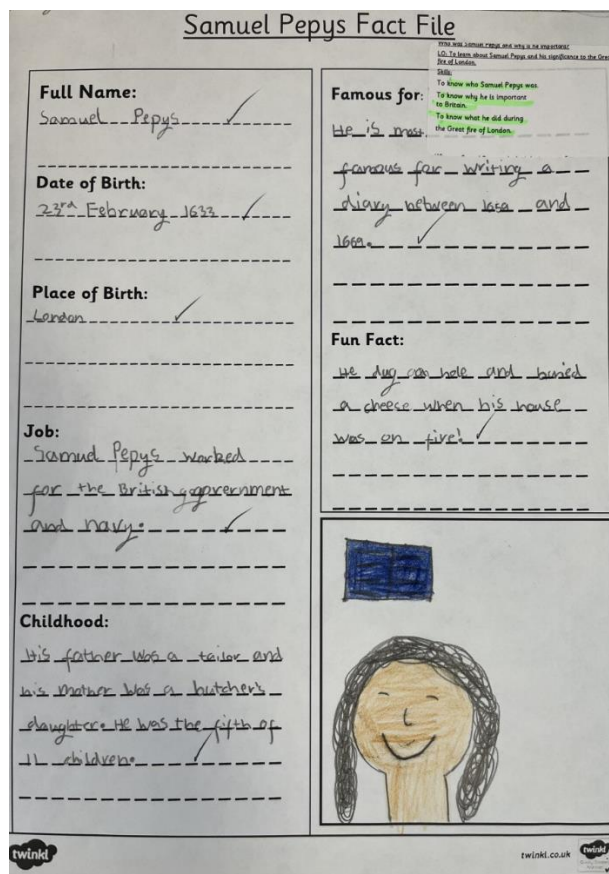 Samuel Pepys Fact File
Who was Samuel Pepys and why is he important?
LO: To learn about Samuel Pepys and his significance to the Great
fire of London.
Skills:
To know who Samuel Pepys was.
To know why he is important
to Britain.
To know what he did during
the Great fire of London.
Full Name:
Samuel Pepys
Date of Birth:
23rd February 1633
Place of Birth:
London
Job:
Samuel Pepys worked
for the British government
and navy.
Childhood:
His father was a tailor and
his mother was a butcher's
daughter. He was the fifth of
11 children.
Famous for:
He is most
famous for writing a
diary between and
1669.
Fun Fact:
He dug hole and buried
a cheese when his house
was on fire!
twinkl
twinkl.co.uk
twinkl